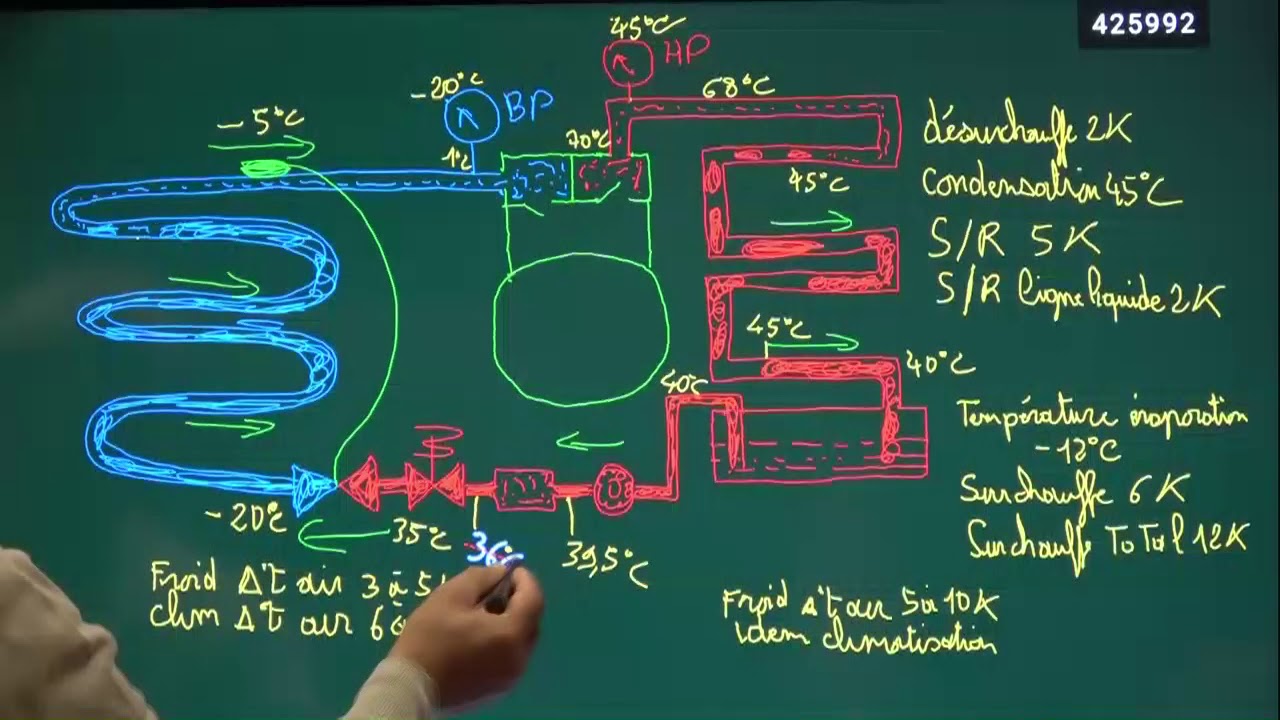 425992
45°C
HP
-20°C
BP
68°C
-5°C
70°C
1°C
45°C
désurchauffe 2K
Condensation 45°C
S/R 5K
S/R ligne liquide 2K
45°C
40°C
40°C
Température évaporation
-12°C
Surchauffe 6K
Surchauffe ToTal 12K
-20°C
35°C
36°C
39,5°C
Froid Δ°t air 3 à 5
Clim Δ°t air 6 à
Froid Δ°t air 5 à 10K
idem climatisation